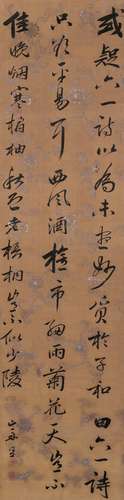 或疑六一詩以為未盡妙質於子和曰六一詩
只欲平易耳西風酒旗市細雨菊花天豈不
佳晚烟寒橘柚秋色老梧桐豈不似少陵